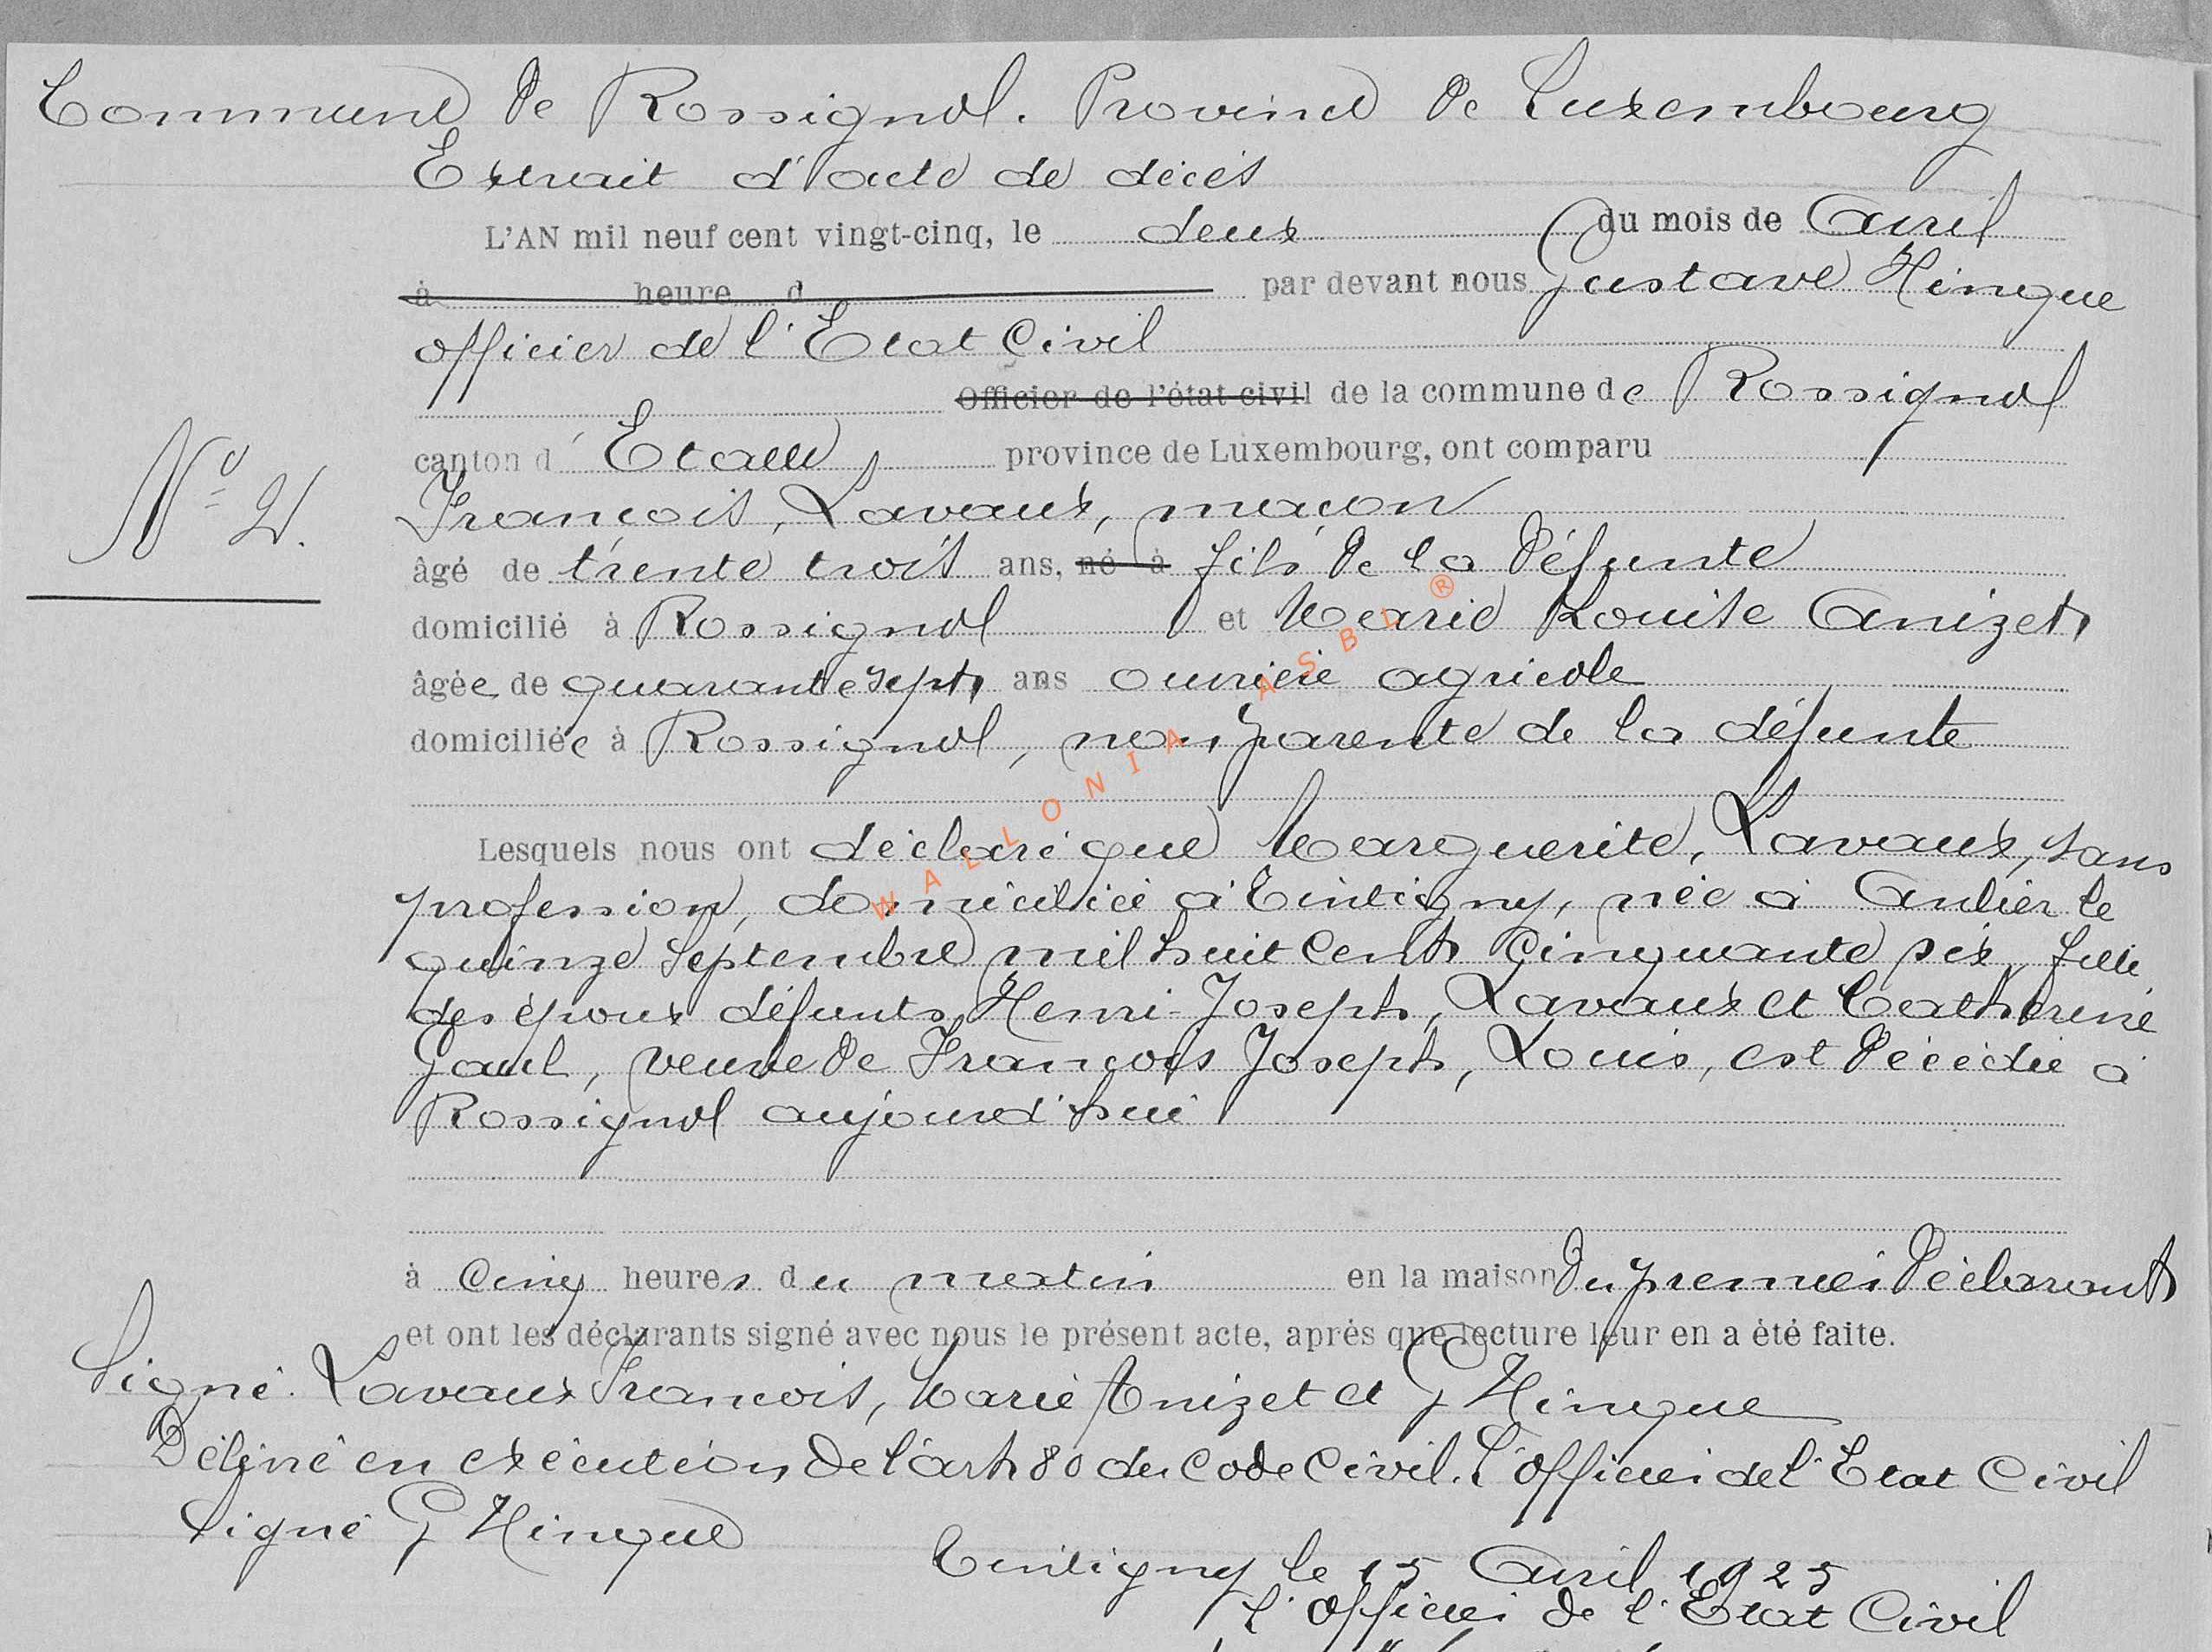 Commune de Rossignol. Province de Luxembourg
Extrait d'acte de décès
L'AN mil neuf cent vingt-cinq, le deux du mois de Avril
à heure d par devant nous Gustave Hinque
officier de l'Etat Civil
Officier de l'état civil de la commune de Rossignol
canton d' Etalle province de Luxembourg, ont comparu
N° 2.
François, Lavaux, maçon
âgé de trente trois ans, né à fils de la défunte
domicilié à Rossignol et Marie Louise Anizet
âgée de quarante sept ans ouvrière agricole
domiciliée à Rossignol, non parente de la défunte
Lesquels nous ont déclaré que Marguerite, Lavaux, sans
profession, domiciliée à Tintigny, née à Anlier le
quinze Septembre mil huit cent cinquante six, fille
des époux défunts Henri-Joseph, Lavaux et Catherine
Gaul, veuve de François Joseph, Louis, est décédée à
Rossignol aujourd'hui
à cinq heures du matin en la maison du premier déclarant
et ont les déclarants signé avec nous le présent acte, après que lecture leur en a été faite.
Signé. Lavaux François, Marie Anizet et G Hinque
Délivré en exécution de l'art 80 du Code Civil. L'officier de l'Etat Civil
Signé G Hinque
Tintigny le 15 Avril 1925
L'officier de l'Etat Civil
WALLONIA ASBL ®